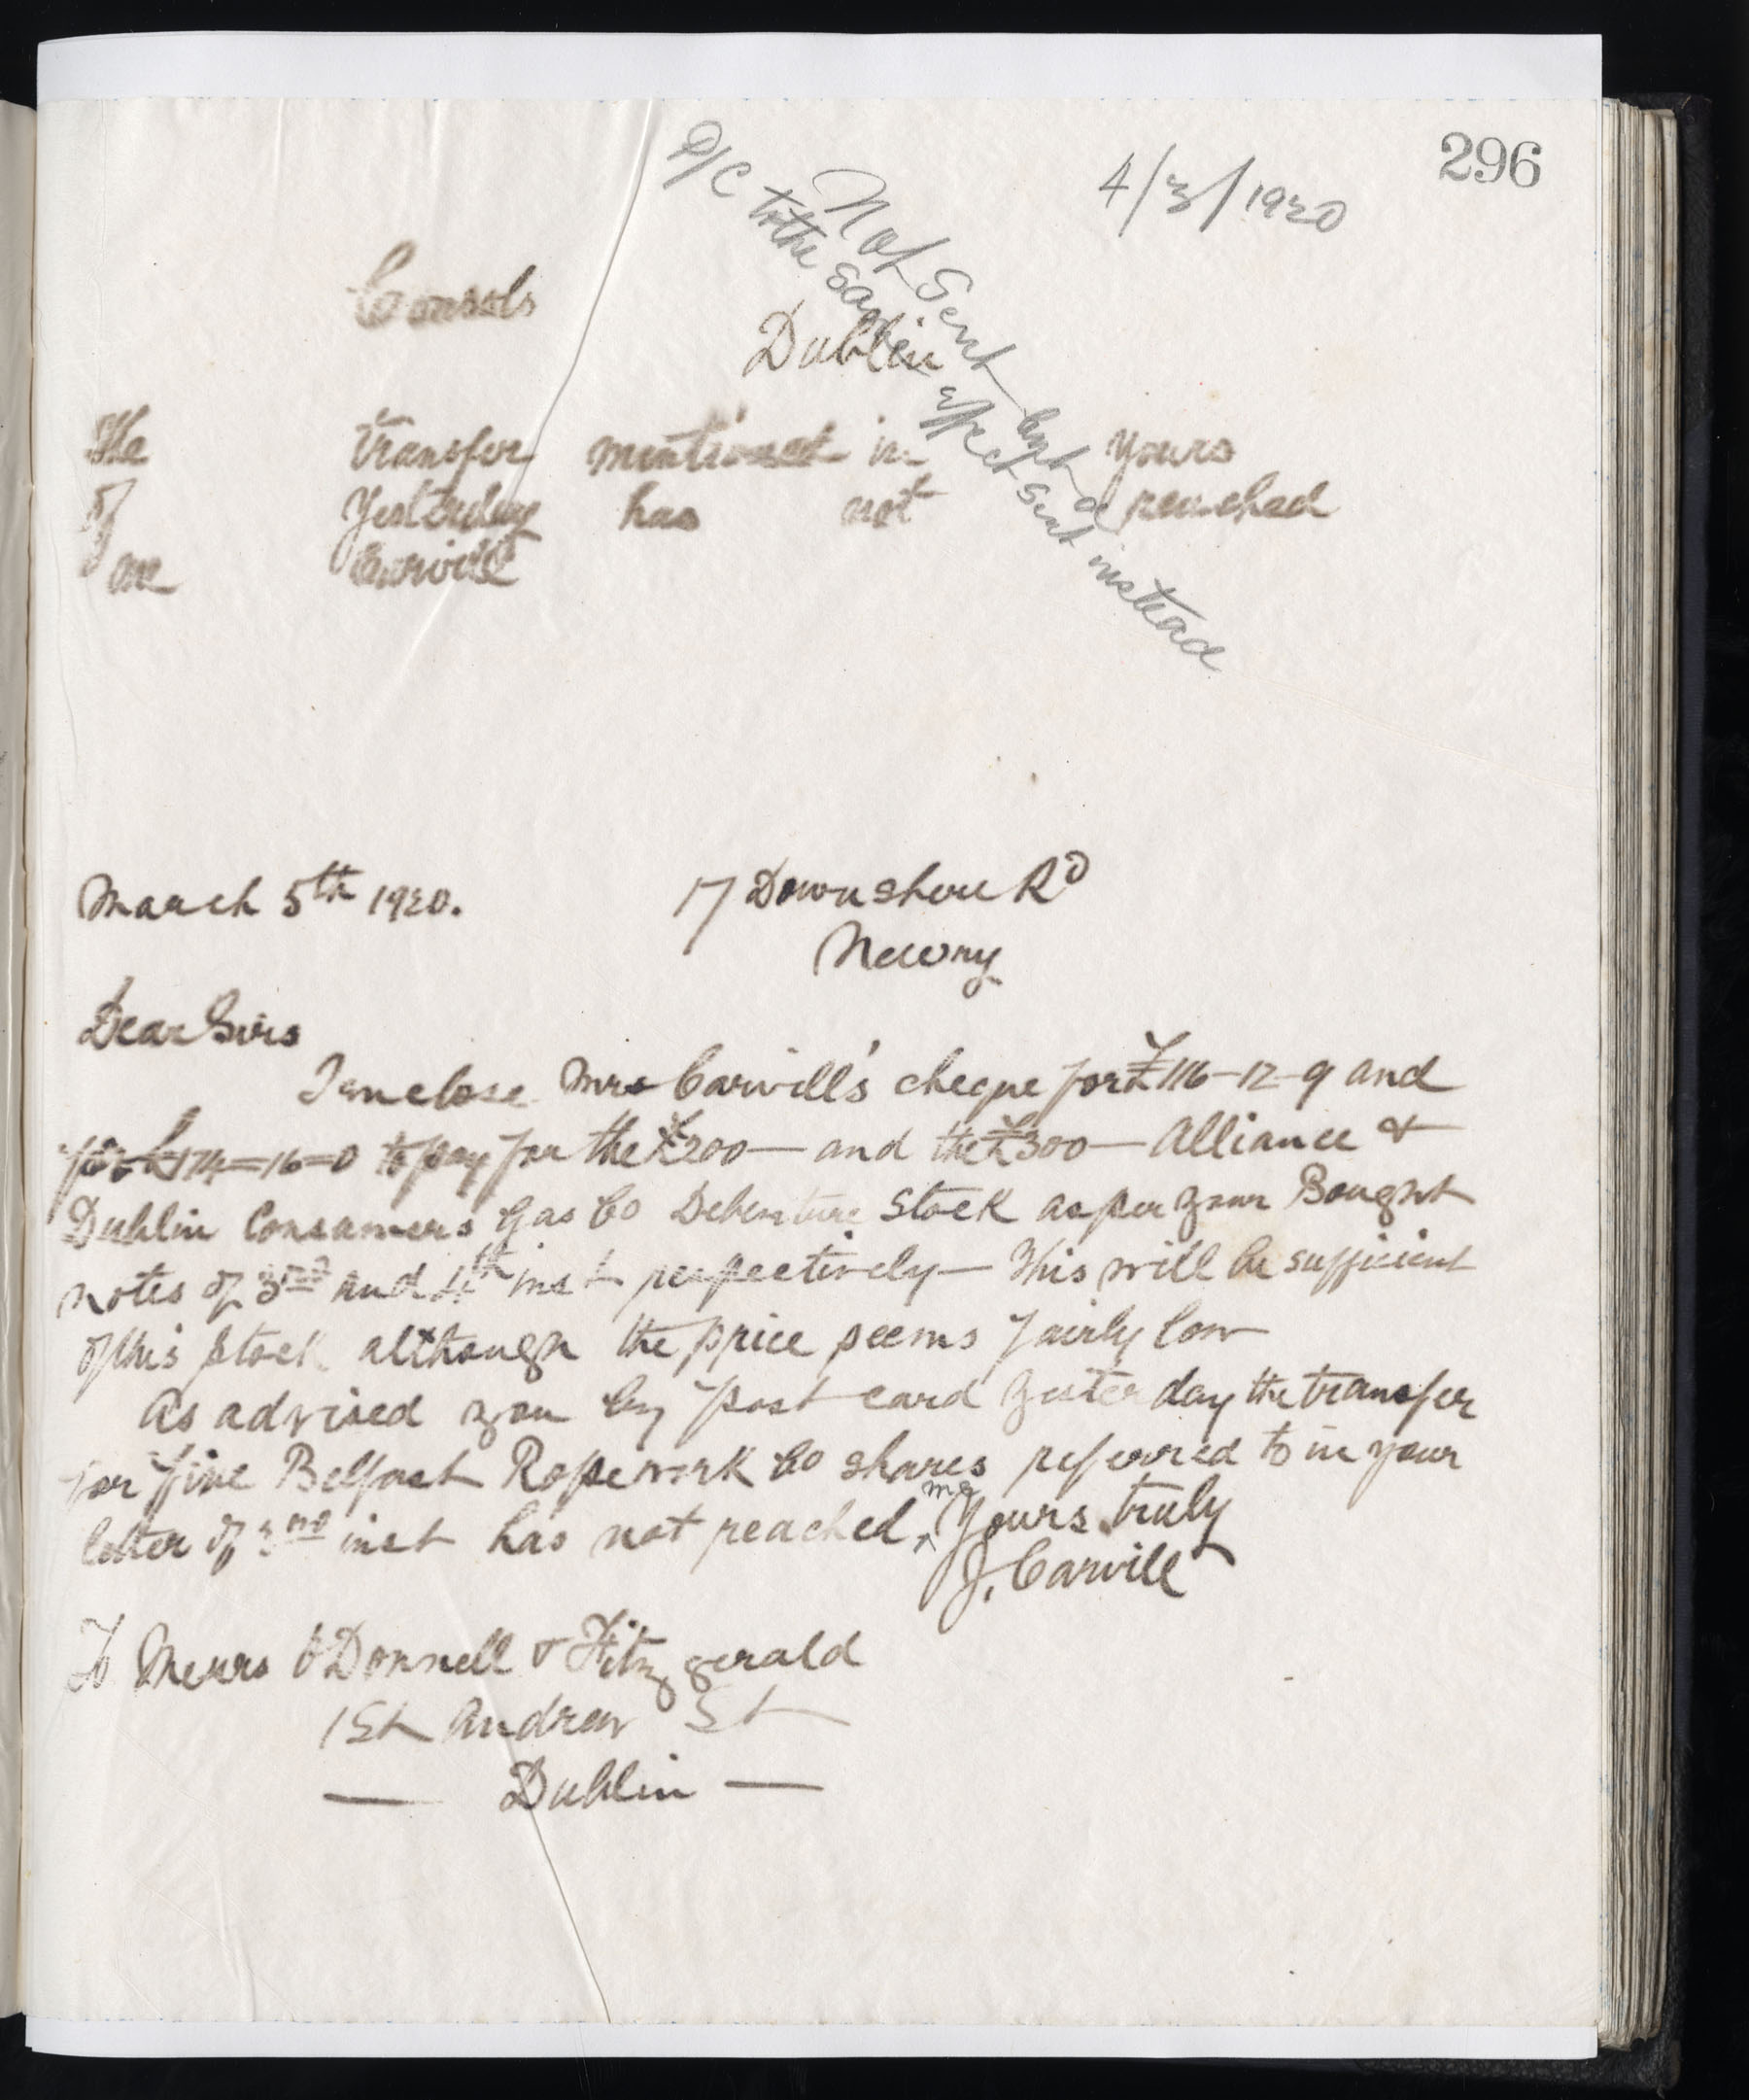 296
4/3/1920
Not Sent but a
P/C to the same effect sent instead
Consols
Dublin
The transfer mentioned in yours
of yesterday has not reached
me Carvill
March 5th 1920.
17 Downshire Rd
Newry
Dear Sirs
I enclose Mrs Carvill's cheque for £116-12-9 and
for £174=16=0 to pay for the £200— and the £300— Alliance &
Dublin Consumers Gas Co Debenture Stock as per your Bought
notes of 3rd and 4th inst respectively— This will be sufficient
of this stock although the price seems fairly low
As advised you by post card yesterday the transfer
for five Belfast Ropework Co shares referred to in your
letter of 3rd inst has not reached me Yours truly
J. Carvill
To Messrs O'Donnell & Fitzgerald
1 St Andrew St
— Dublin —